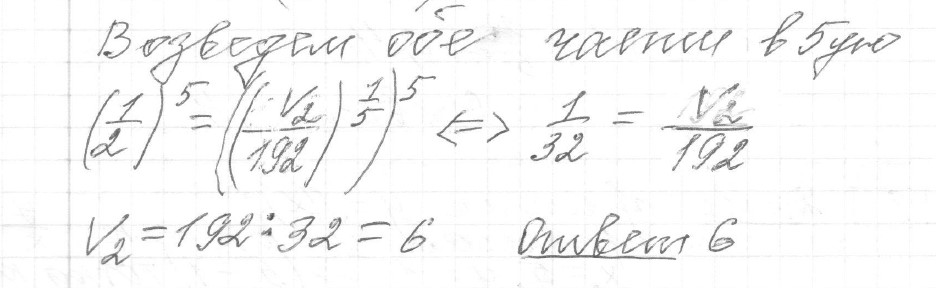 Возведем обе части в 5ую
(1/2)^5 = ((V₂/192)^(1/5))^5 <=> 1/32 = V₂/192
V₂ = 192 : 32 = 6 Ответ 6